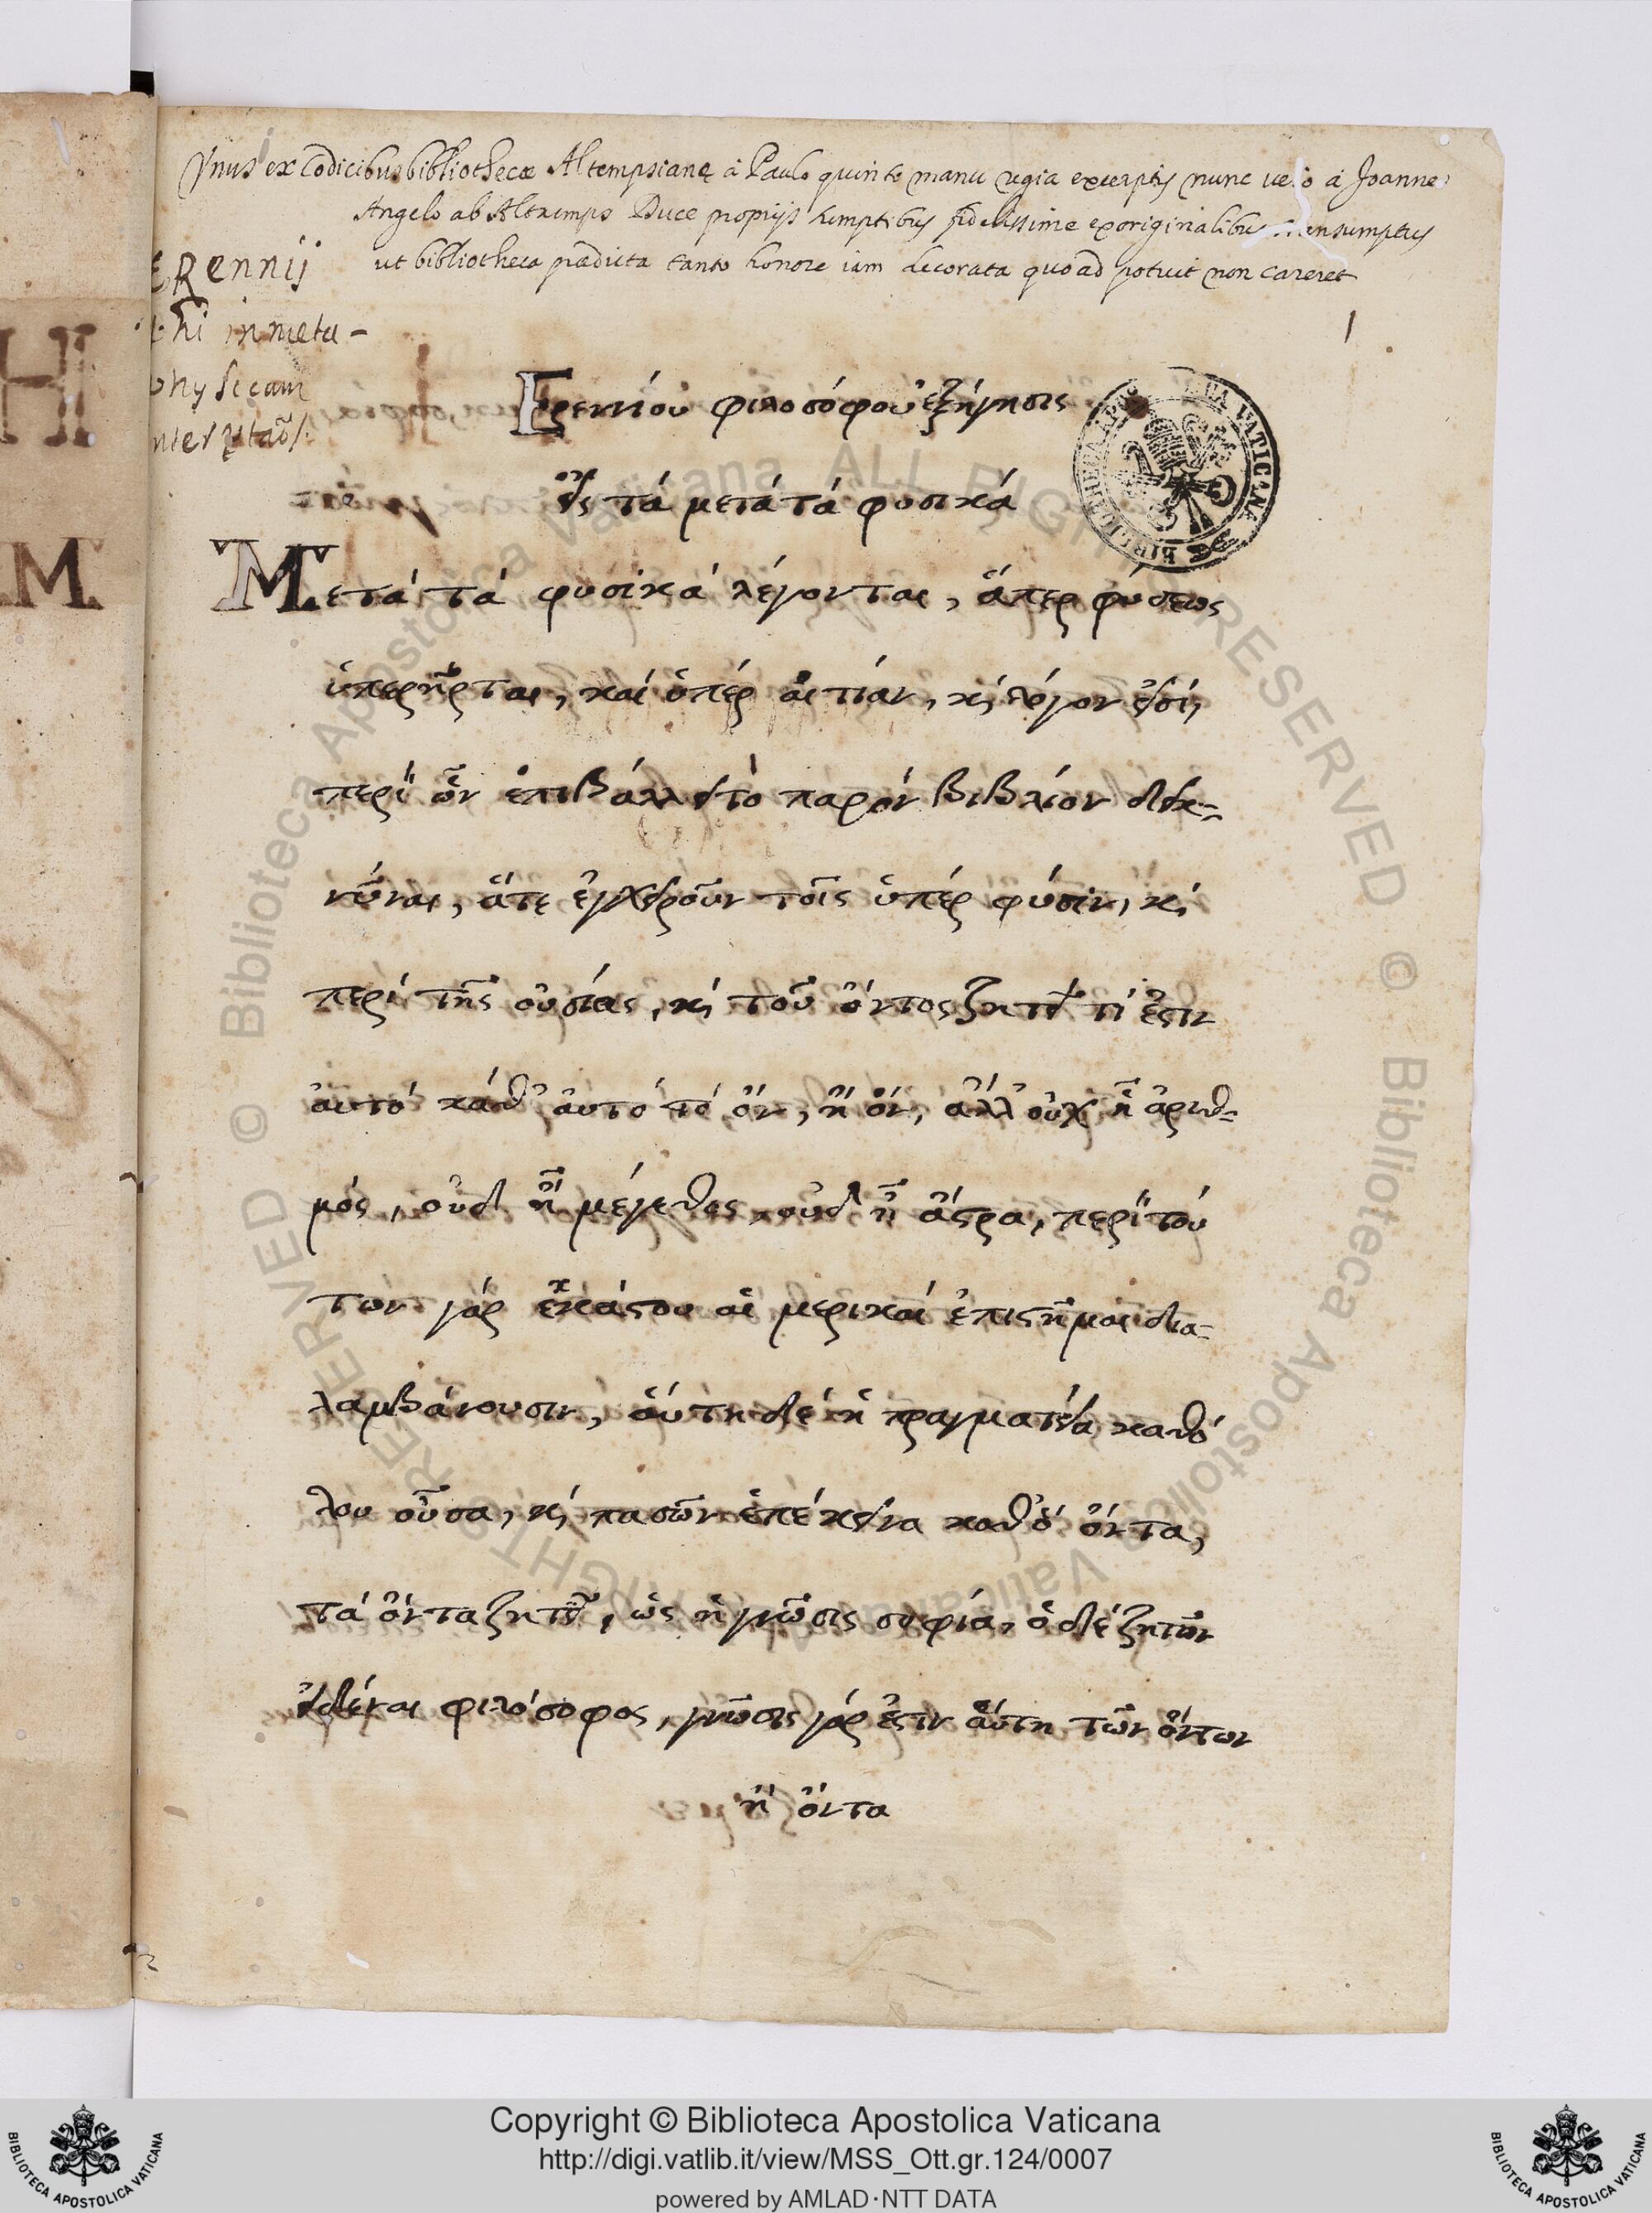 Vnus ex Codicibus bibliothecæ Altempsianę à Paulo quinto manu regia exceptis nunc vero à Joanne
Angelo ab Altaemps Duce proprijs sumptibus fidelissime ex originalibus transumptus
ut bibliotheca prædicta tanto honore iam decorata quoad potuit non careret
ERennij
phi in meta-
physicam
1
Ἑρεννίου φιλοσόφου ἐξήγησις
εἰς τά μετά τά φυσικά
Μετά τά φυσικά λέγονται, ἅπερ φύσεως
ὑπερῇρται, καί ὑπέρ αἰτίαν, κ λόγον εἰσί,
περί ὧν ἐπιβάλλει τό παρόν βιβλίον δεικ-
νύναι, ἅτε ἐγχειροῦν τοῖς ὑπέρ φύσιν, κ
περί τῆς οὐσίας, κ τοῦ ὄντος ζητεῖ τί ἐστιν
αὐτό καθ' αὐτό τό ὄν, ἤ ὄν, ἀλλ' οὐχ ἧ ἀριθ-
μός, οὐδ ἧ μέγεθος, οὐδ' ἧ ἄστρα, περί τού
των γάρ ἑκάστου αἱ μερικαί ἐπιστῆμαι δια-
λαμβάνουσιν, αὕτη δέ ἡ πραγματεία καθό
λου οὖσα, κ πασῶν ἐπέκεινα καθό ὄντα,
τά ὄντα ζητεῖ, ὡς ἡ γνῶσις σοφία, ὁ δέ ζητῶν
εἰδέναι φιλόσοφος, γνῶσις γάρ ἐστιν αὕτη τῶν ὄντων
ἤ ὄντα
H
M
BIBLIOTHECA APOSTOLICA VATICANA
© Biblioteca Apostolica Vaticana ALL RIGHTS RESERVED © Biblioteca Apostolica Vaticana ALL RIGHTS RESERVED
Copyright © Biblioteca Apostolica Vaticana
http://digi.vatlib.it/view/MSS_Ott.gr.124/0007
powered by AMLAD·NTT DATA
BIBLIOTECA APOSTOLICA VATICANA
BIBLIOTECA APOSTOLICA VATICANA